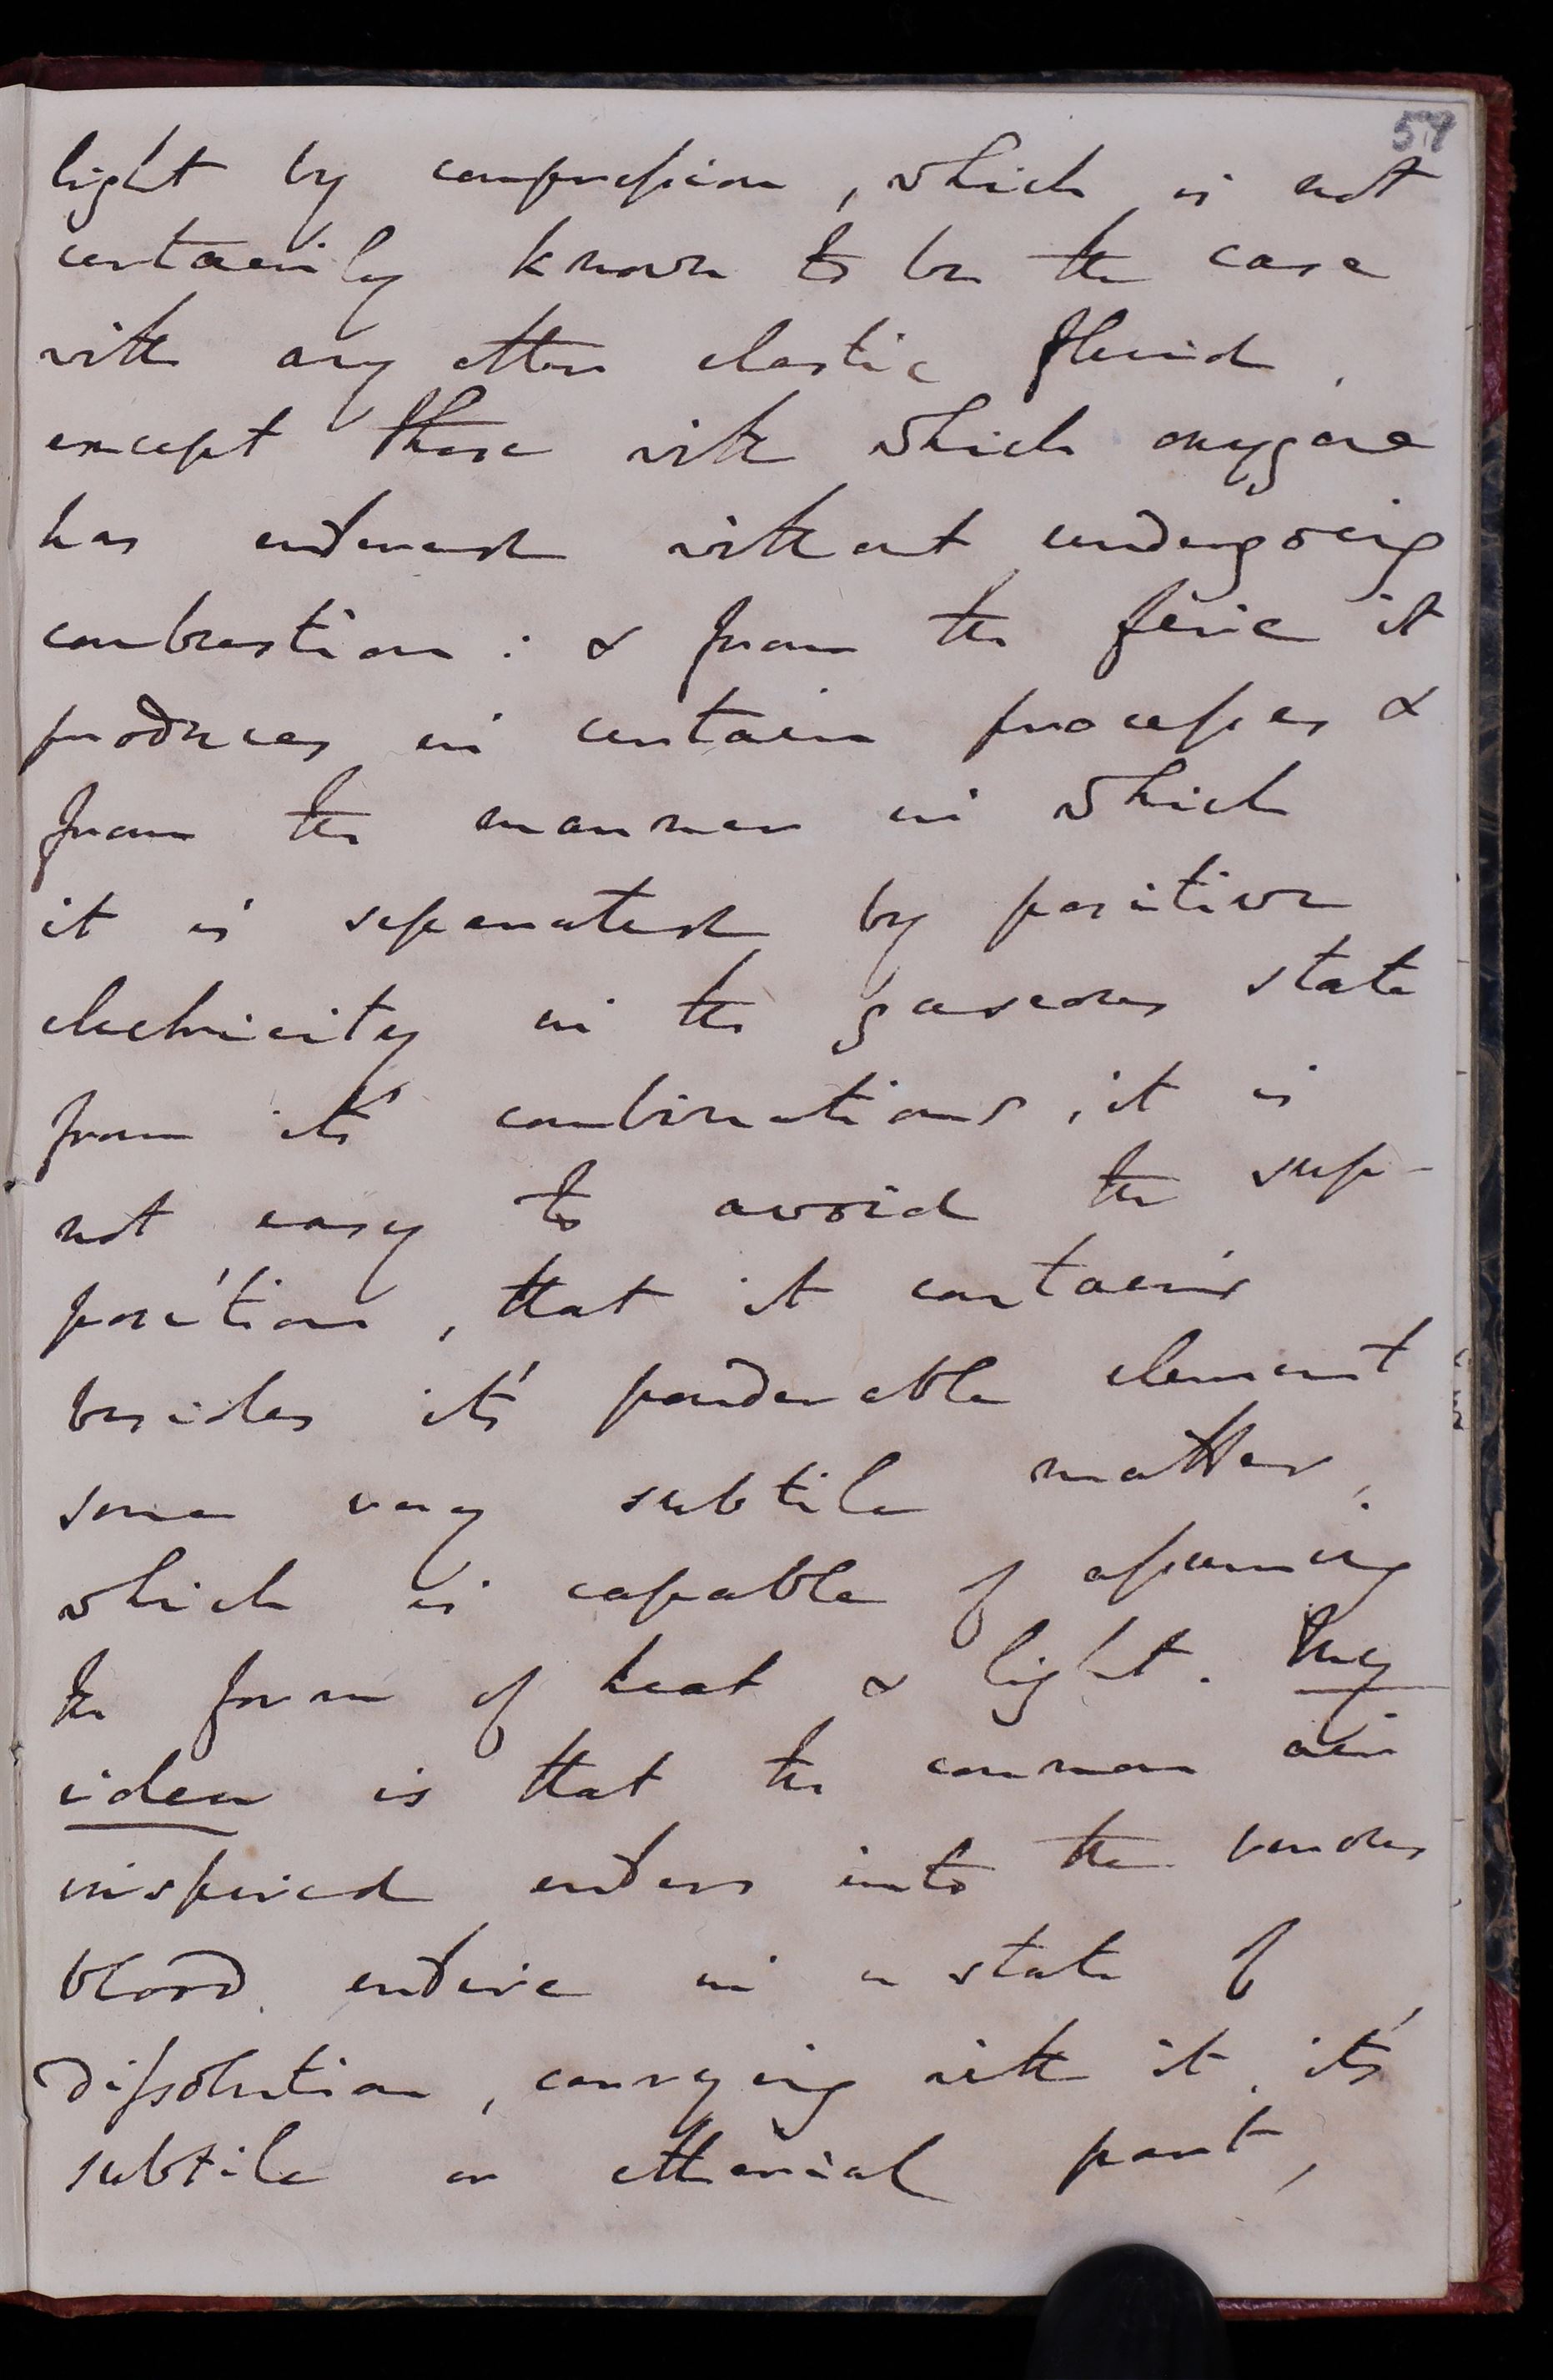 57
light by compression, which is not
certainly known to be the case
with any other elastic fluid,
except those with which oxygene
has entered without undergoing
combustion: & from the fire it
produces in certain processes &
from the manner in which
it is separated by positive
electricity in the gaseous state
from it's combinations, it is
not easy to avoid the sup-
position, that it contains
besides it's ponderable element
some very subtile matter,
which is capable of assuming
the form of heat & light. My
idea is that the common air
inspired enters into the venous
blood entire in a state of
dissolution, carrying with it it's
subtile or etherial part,